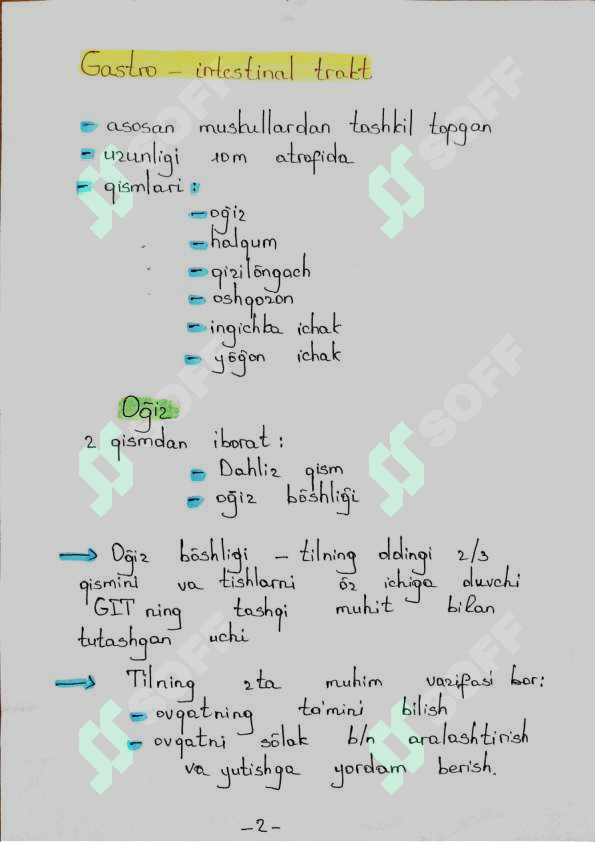 Gastro - intestinal trakt
- asosan muskullardan tashkil topgan
- uzunligi 10m atrofida
- qismlari :
- oğiz
- halqum
- qizilōngach
- oshqozon
- ingichka ichak
- yōğon ichak
Oğiz
2 qismdan iborat :
- Dahliz qism
- oğiz bōshliği
→ Oğiz bōshliği - tilning oldingi 2/3
qismini va tishlarni ōz ichiga oluvchi
GIT ning tashqi muhit bilan
tutashgan uchi
→ Tilning 2ta muhim vazifasi bor:
- ovqatning ta'mini bilish
- ovqatni sōlak b/n aralashtirish
va yutishga yordam berish.
-2-
SOFF
SOFF
SOFF
SOFF
SOFF
SOFF